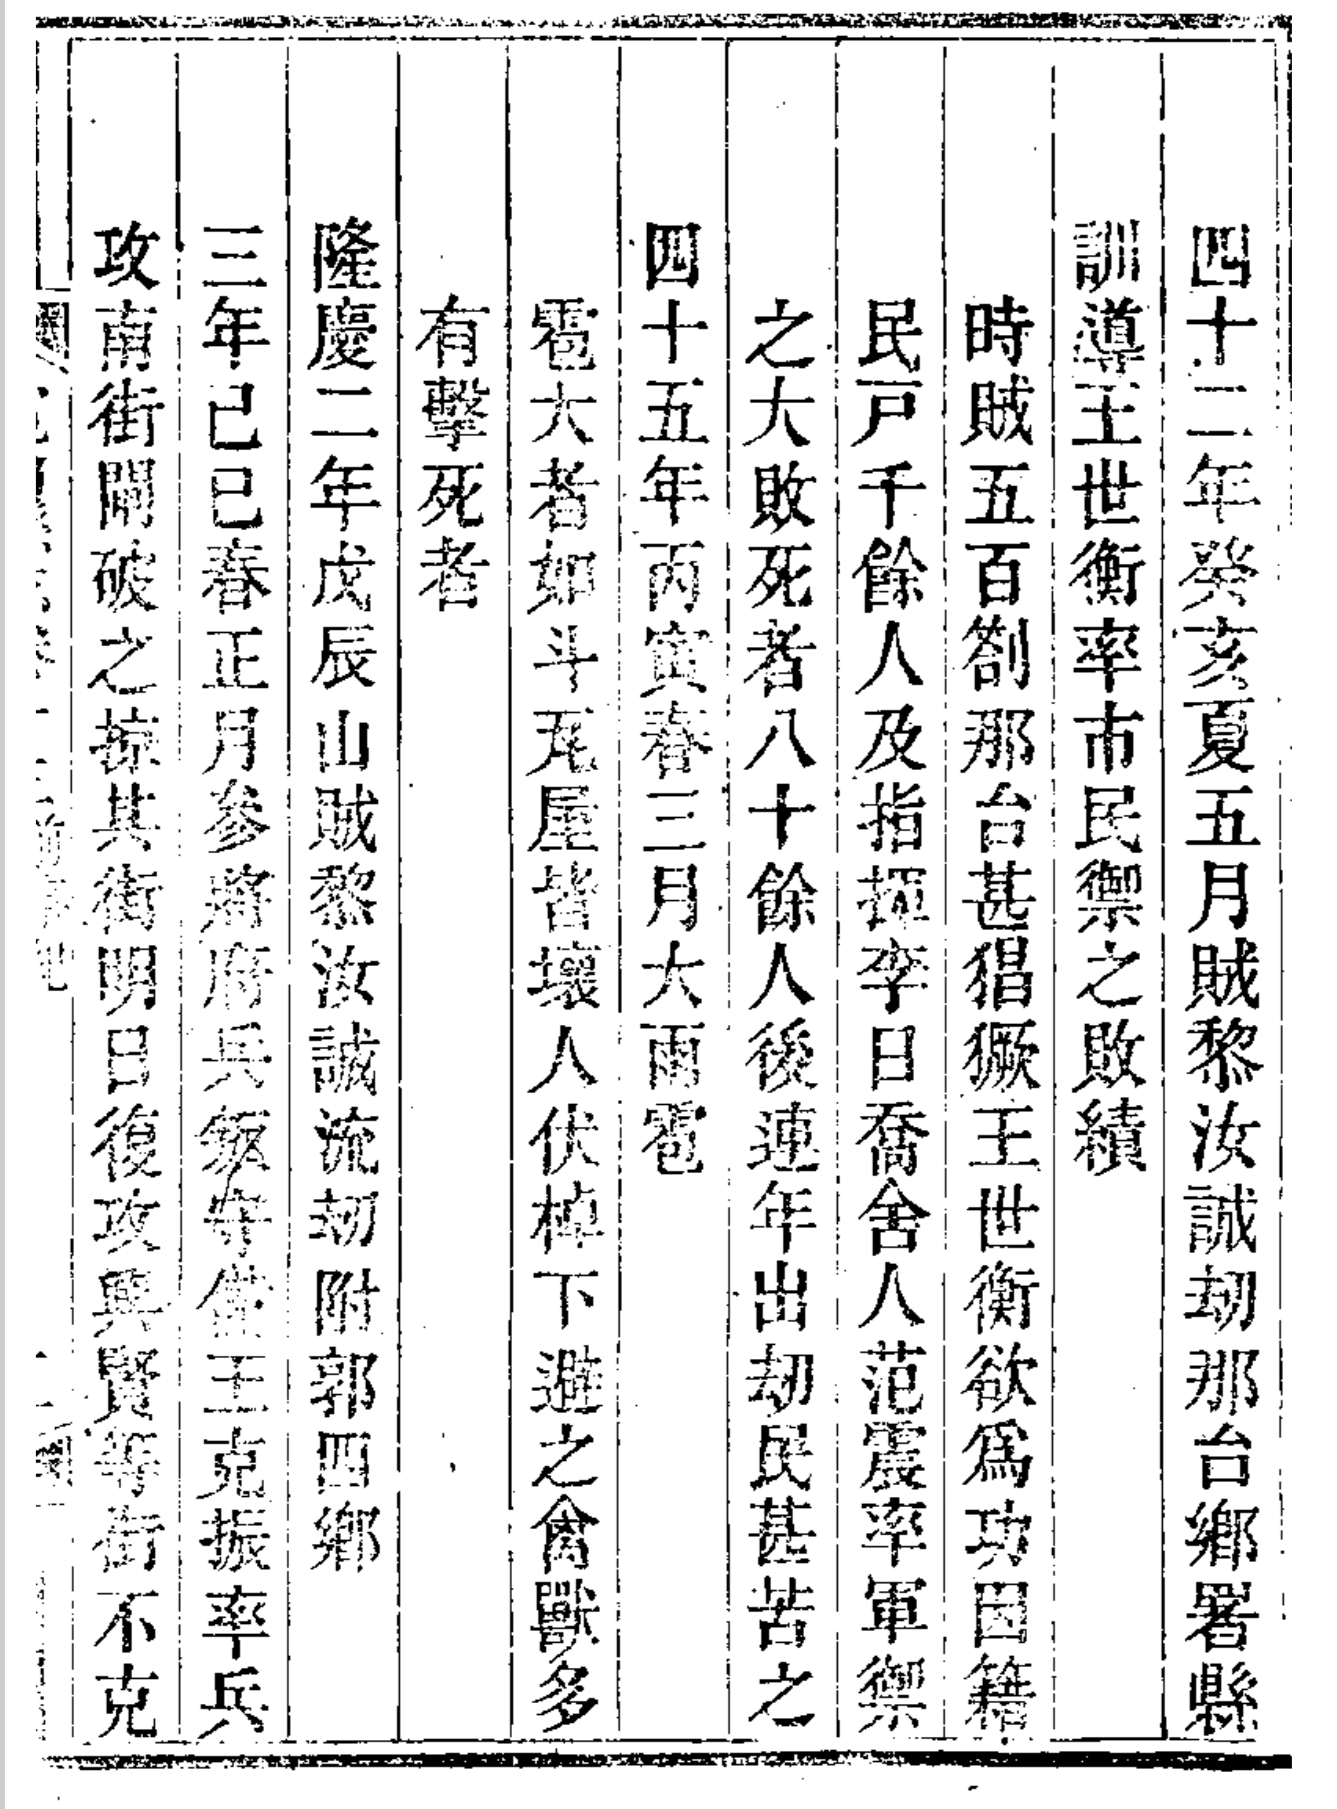 四十二年癸亥夏五月賊黎汝誠刼那台鄉署縣
訓導王世衡率市民禦之敗績
時賊五百劄那台甚猖獗王世衡欲爲功因籍
民戸千餘人及指揮李日喬舍人范震率軍禦
之大敗死者八十餘人後連年出刼民甚苦之
四十五年丙寅春三月大雨雹
雹大者如斗瓦屋皆壞人伏棹下避之禽獸多
有擊死者
隆慶二年戊辰山賊黎汝誠流刼附郭四鄉
三年己巳春正月參將府兵叛守備王克振率兵
攻南街閘破之掠其街明日復攻興賢等街不克